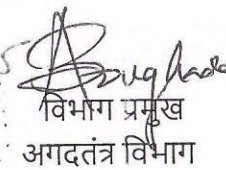 विभाग प्रमुख
अगदतंत्र विभाग